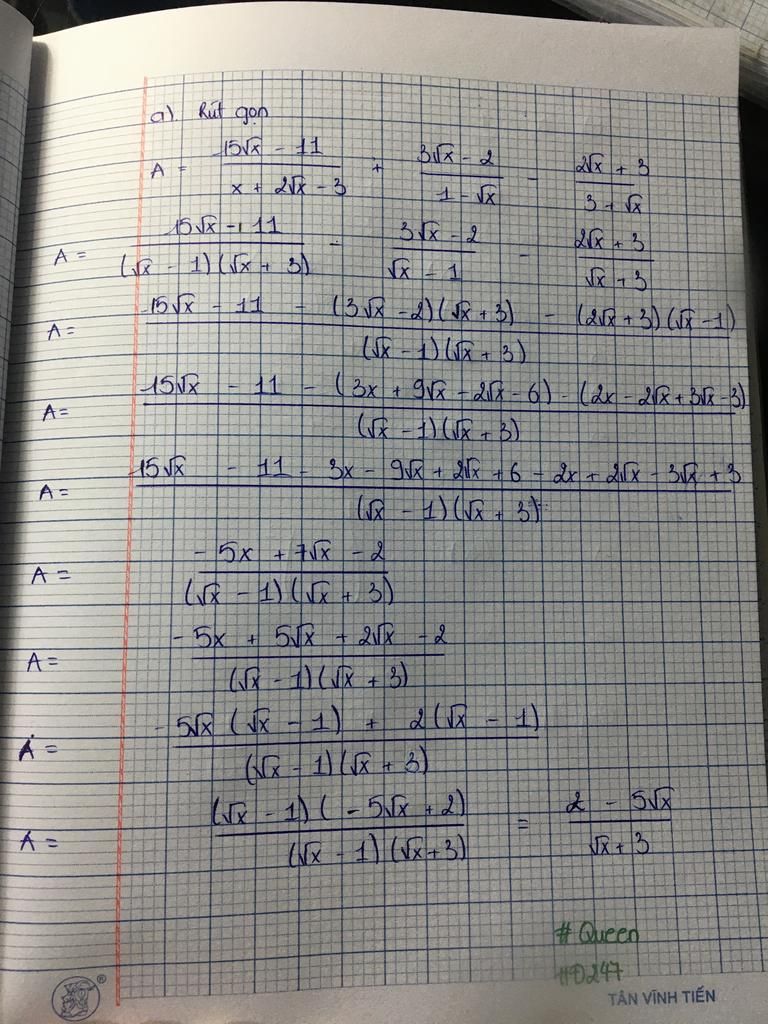 a) Rút gọn
A = (15√x - 11)/(x + 2√x - 3) + (3√x - 2)/(1 - √x) - (2√x + 3)/(3 + √x)
A = (15√x - 11)/((√x - 1)(√x + 3)) - (3√x - 2)/(√x - 1) - (2√x + 3)/(√x + 3)
A = (15√x - 11 - (3√x - 2)(√x + 3) - (2√x + 3)(√x - 1))/((√x - 1)(√x + 3))
A = (15√x - 11 - (3x + 9√x - 2√x - 6) - (2x - 2√x + 3√x - 3))/((√x - 1)(√x + 3))
A = (15√x - 11 - 3x - 9√x + 2√x + 6 - 2x + 2√x - 3√x + 3)/((√x - 1)(√x + 3))
A = (-5x + 7√x - 2)/((√x - 1)(√x + 3))
A = (-5x + 5√x + 2√x - 2)/((√x - 1)(√x + 3))
A = (-5√x(√x - 1) + 2(√x - 1))/((√x - 1)(√x + 3))
A = ((√x - 1)(-5√x + 2))/((√x - 1)(√x + 3)) = (2 - 5√x)/(√x + 3)
# Queen
#D247
TÂN VĨNH TIẾN